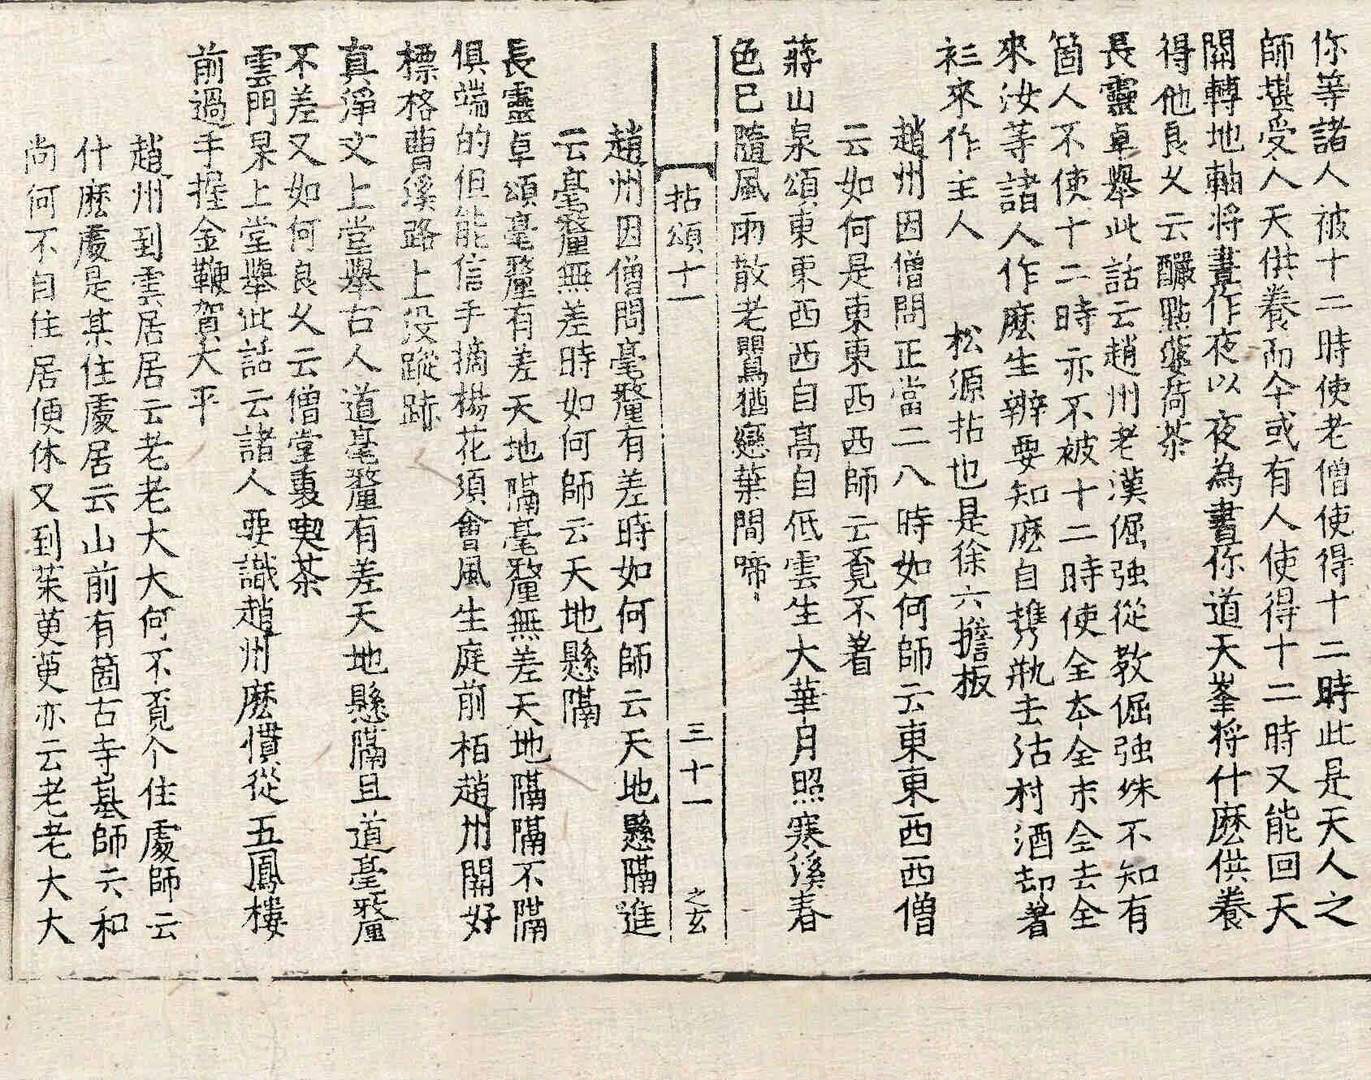 你等諸人被十二時使老僧使得十二時此是天人之
師堪受人天供養而今或有人使得十二時又能回天
關轉地軸將晝作夜以夜為晝你道天峯將什麽供養
得他良久云釅點薄荷茶
長靈卓舉此話云趙州老漢倔強從教倔強殊不知有
箇人不使十二時亦不被十二時使全本全末全去全
來汝等諸人作麽生辨要知麽自携瓶去沽村酒却著
衫來作主人　松源拈也是徐六擔板
趙州因僧問正當二八時如何師云東東西西僧
云如何是東東西西師云覔不著
蔣山泉頌東東西西自高自低雲生大華月照寒溪春
色已隨風雨散老鸎猶戀葉間啼〻
拈頌十一　三十一　之玄
趙州因僧問毫釐有差時如何師云天地懸隔進
云毫釐無差時如何師云天地懸隔
長靈卓頌毫釐有差天地隔毫釐無差天地隔隔不隔
俱端的但能信手摘楊花須會風生庭前栢趙州關好
標格曹溪路上没蹤跡
真淨文上堂舉古人道毫釐有差天地懸隔且道毫釐
不差又如何良久云僧堂裏喫茶
雲門杲上堂舉此話云諸人要識趙州麽慣從五鳳樓
前過手握金鞭賀大平
趙州到雲居居云老老大大何不覔个住處師云
什麽處是某住處居云山前有箇古寺基師云和
尚何不自住居便休又到茱萸萸亦云老老大大